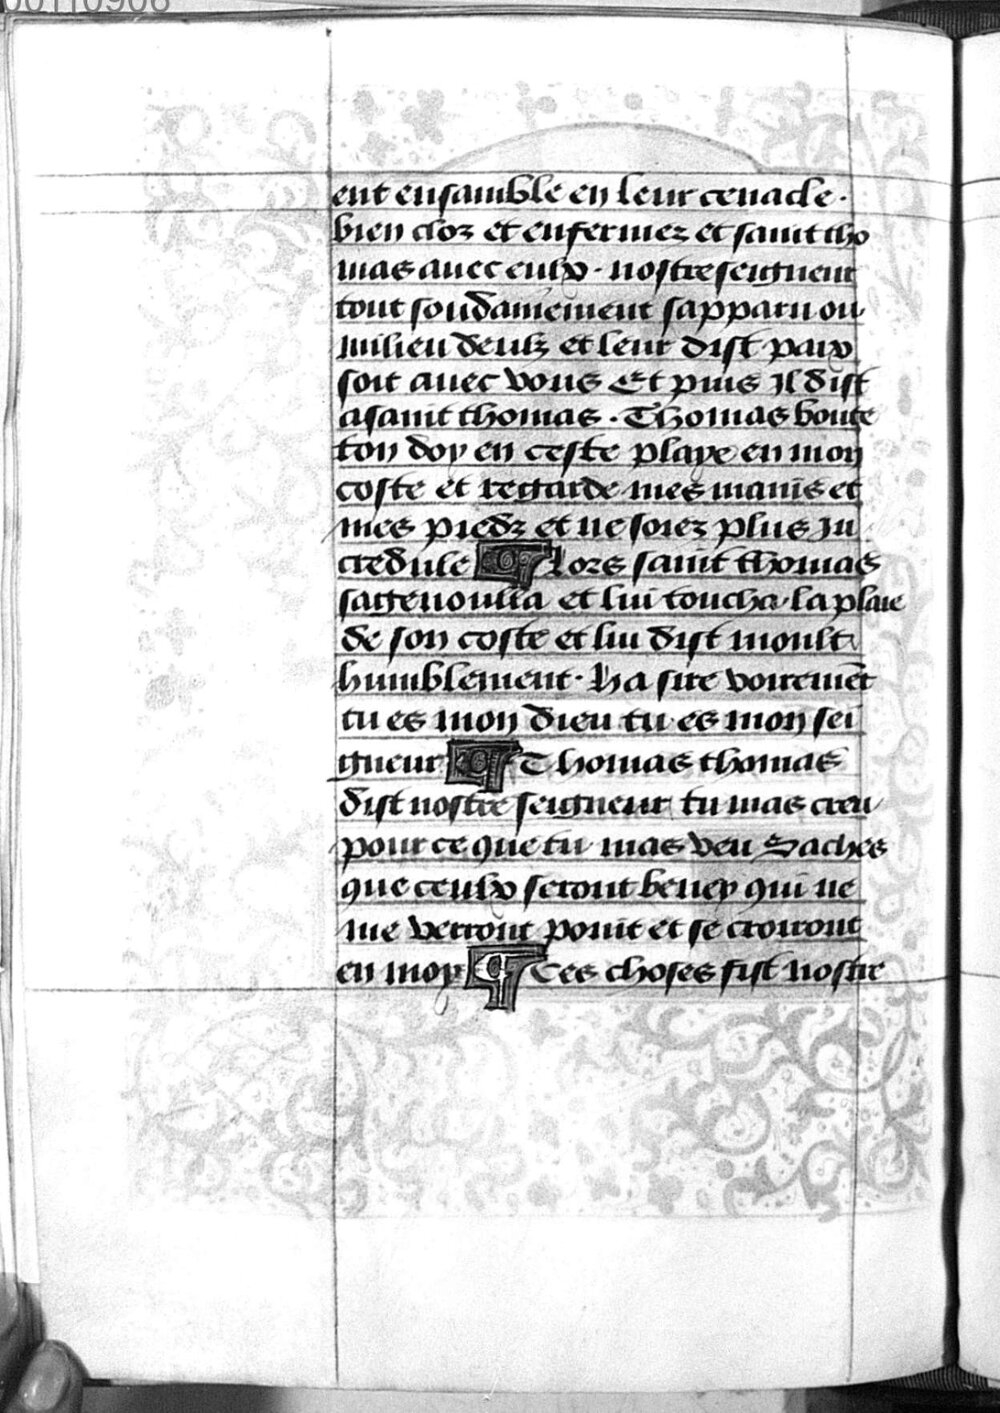 00110908
ent ensamble en leur cenacle·
bien cloz et enfermez et saint tho
mas auec eulx· nostre seigneur
tout soudainement sapparu ou
milieu deulz et leur dist paix
soit auec vous Et puis Il dist
a saint thomas· Thomas boute
ton doy en ceste playe en mon
coste et regarde mes mains et
mes piedz et ne soiez plus In
credule ¶ Lors saint thomas
sagenoulla et lui toucha la plaie
de son coste et lui dist moult
humblement· Ha sire voiremẽt
tu es mon dieu tu es mon sei
gneur ¶ Thomas thomas
dist nostre seigneur tu mas creu
pour ce que tu mas veu Saches
que ceulx seront beney qui ne
me verront point et se croiront
en moy ¶ Ces choses fist nostre